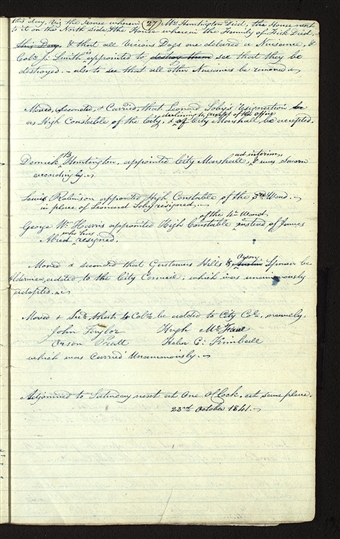 this day, viz. the House wherein (27) Mr. Huntington Died, the House next
to it on the North side, the House wherein the Family of Hick Died,
& that all Vicious Dogs are declared a Nuisance, &
Cobr. J. Smith appointed to destroy them see that they be
destroyed, also to see that all other Nuisances be removed
Moved, Seconded, & Carried, that Leonard Soby's resignation be
declining to qualify of the office
as High Constable of the City, & of City Marshall, be accepted.
Dimick B. Huntington, appointed City Marshall, ad interim, & was sworn
accordingly.
Lewis Robinson appointed High Constable of the 2nd Ward.
in place of Leonard Soby resigned,
of the 1st Ward,
George W. Harris appointed High Constable instead of James
who has
Allred resigned.
Moved & seconded that Gustavus Hills & Orson Spencer be
Aldermen added to the City Council, which was unanimously
adopted.
Moved & Sec. that 4 Cobr. be added to City Co., namely
John Taylor Hugh McFall
Orson Pratt Heber C. Kimball
which was Carried Unanimously.
Adjourned to Saturday next at One O'Clock, at same place.
23rd October 1841.